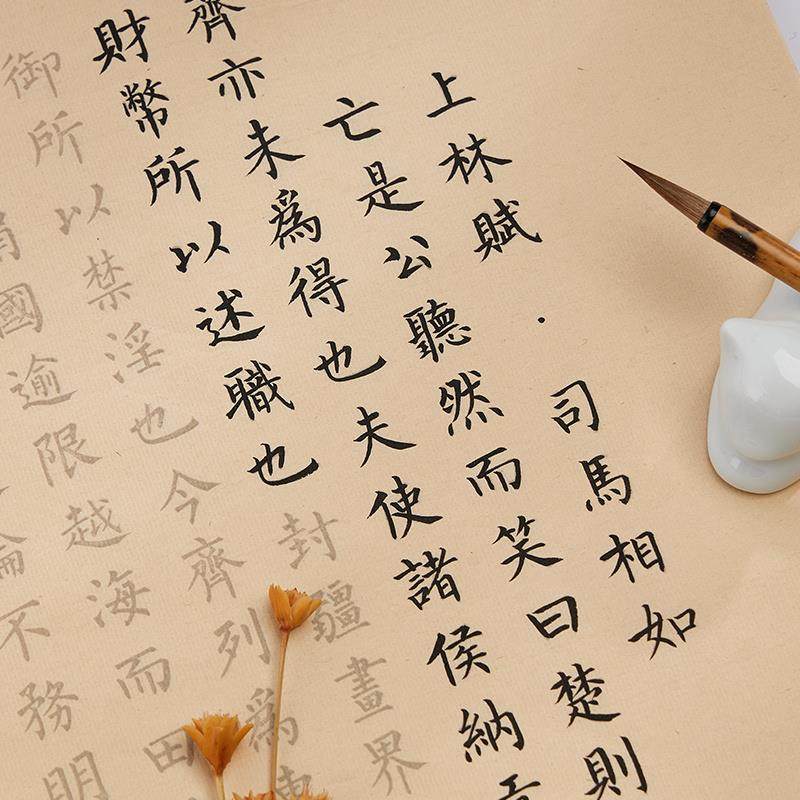 上林賦·司馬相如
亡是公聽然而笑曰楚則
齊亦未爲得也夫使諸侯納
財幣所以述職也封疆畫界
御所以禁淫也今齊列爲
國逾限越海而田
不務明